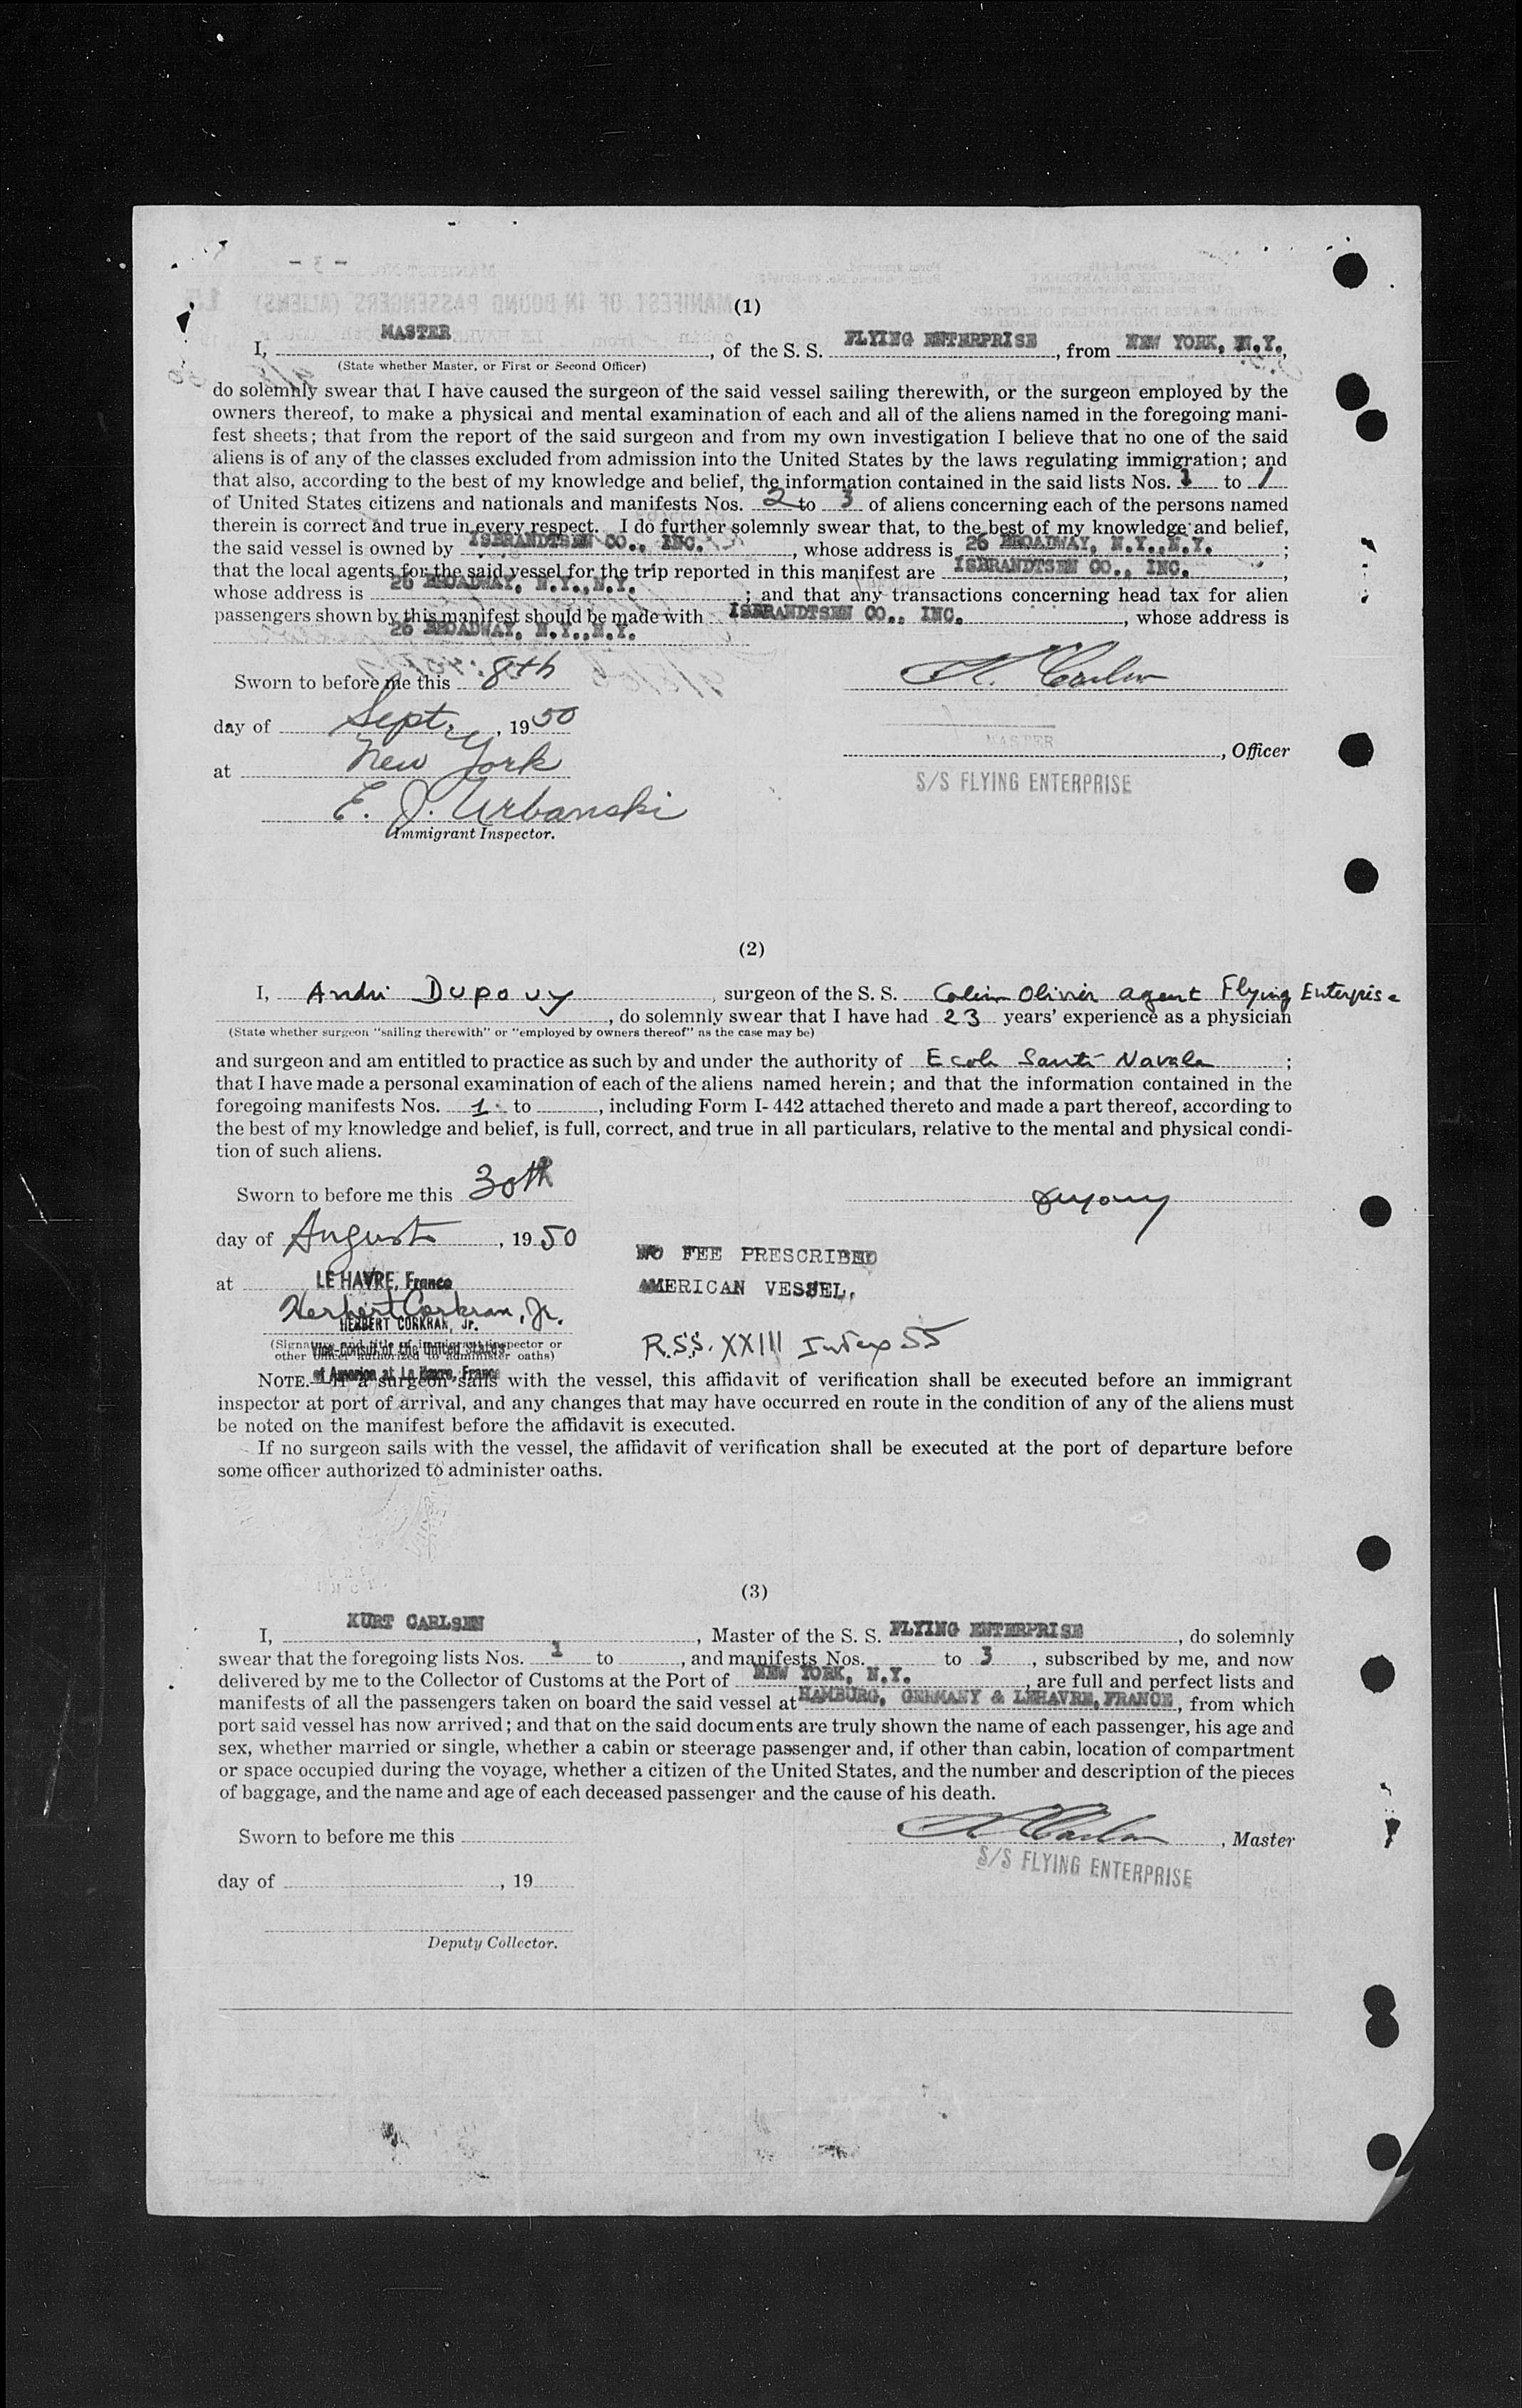 (1)
I, MASTER, of the S. S. FLYING ENTERPRISE, from NEW YORK, N.Y.,
(State whether Master, or First or Second Officer)
do solemnly swear that I have caused the surgeon of the said vessel sailing therewith, or the surgeon employed by the
owners thereof, to make a physical and mental examination of each and all of the aliens named in the foregoing mani-
fest sheets; that from the report of the said surgeon and from my own investigation I believe that no one of the said
aliens is of any of the classes excluded from admission into the United States by the laws regulating immigration; and
that also, according to the best of my knowledge and belief, the information contained in the said lists Nos. 1 to 1
of United States citizens and nationals and manifests Nos. 2 to 3 of aliens concerning each of the persons named
therein is correct and true in every respect. I do further solemnly swear that, to the best of my knowledge and belief,
the said vessel is owned by ISBRANDTSEN CO., INC., whose address is 26 BROADWAY, N.Y.,N.Y. ;
that the local agents for the said vessel for the trip reported in this manifest are ISBRANDTSEN CO., INC. ,
whose address is 26 BROADWAY, N.Y.,N.Y. ; and that any transactions concerning head tax for alien
passengers shown by this manifest should be made with ISBRANDTSEN CO., INC. , whose address is
26 BROADWAY, N.Y.,N.Y.
Sworn to before me this 8th
K. Carlsen
day of Sept., 1950
MASTER
, Officer
at New York
S/S FLYING ENTERPRISE
E. J. Urbanski
Immigrant Inspector.
(2)
I, André Dupouy, surgeon of the S. S. Colin Olivier agent Flying Enterprise
, do solemnly swear that I have had 23 years' experience as a physician
(State whether surgeon "sailing therewith" or "employed by owners thereof" as the case may be)
and surgeon and am entitled to practice as such by and under the authority of Ecole Santé Navale ;
that I have made a personal examination of each of the aliens named herein; and that the information contained in the
foregoing manifests Nos. 1 to , including Form I-442 attached thereto and made a part thereof, according to
the best of my knowledge and belief, is full, correct, and true in all particulars, relative to the mental and physical condi-
tion of such aliens.
Sworn to before me this 30th
Dupouy
day of August, 1950
NO FEE PRESCRIBED
at LE HAVRE, France
AMERICAN VESSEL.
Herbert Corkran, Jr.
HERBERT CORKRAN, Jr.
R.S.S. XXIII 55
(Signature and title of immigrant inspector or
other officer authorized to administer oaths)
Vice-Consul of the United States
of America at Le Havre, France
NOTE.—If a surgeon sails with the vessel, this affidavit of verification shall be executed before an immigrant
inspector at port of arrival, and any changes that may have occurred en route in the condition of any of the aliens must
be noted on the manifest before the affidavit is executed.
If no surgeon sails with the vessel, the affidavit of verification shall be executed at the port of departure before
some officer authorized to administer oaths.
(3)
I, KURT CARLSEN, Master of the S. S. FLYING ENTERPRISE, do solemnly
swear that the foregoing lists Nos. 1 to , and manifests Nos. to 3, subscribed by me, and now
delivered by me to the Collector of Customs at the Port of NEW YORK, N.Y. , are full and perfect lists and
manifests of all the passengers taken on board the said vessel at HAMBURG, GERMANY & LEHAVRE,FRANCE, from which
port said vessel has now arrived; and that on the said documents are truly shown the name of each passenger, his age and
sex, whether married or single, whether a cabin or steerage passenger and, if other than cabin, location of compartment
or space occupied during the voyage, whether a citizen of the United States, and the number and description of the pieces
of baggage, and the name and age of each deceased passenger and the cause of his death.
Sworn to before me this
K Carlsen, Master
S/S FLYING ENTERPRISE
day of , 19
Deputy Collector.